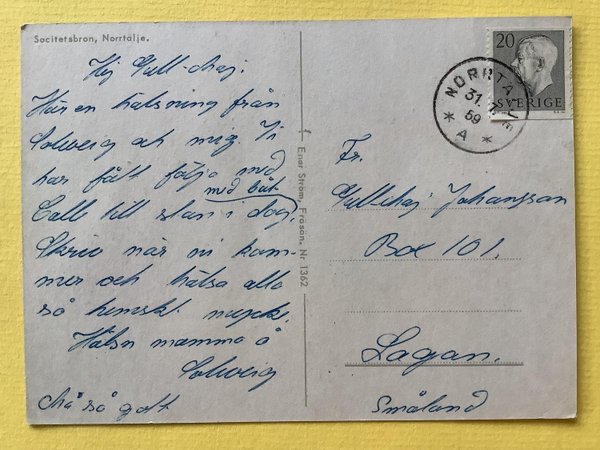 Socitetsbron, Norrtälje.
Hej Gull-Maj.
Här en hälsning från
Solweig och mig. Vi
har fått följa med
med båt
Calle till stan i dag.
Skriv när ni kom-
mer och hälsa alla
så hemskt mycke.
Hälsn mamma å
Solweig
Må så gott
Enar Ström, Frösön. Nr 1362
20
SVERIGE
NORRTÄLJE
31
59
A
Fr.
Gull-Maj Johansson
Box 101.
Lagan.
Småland